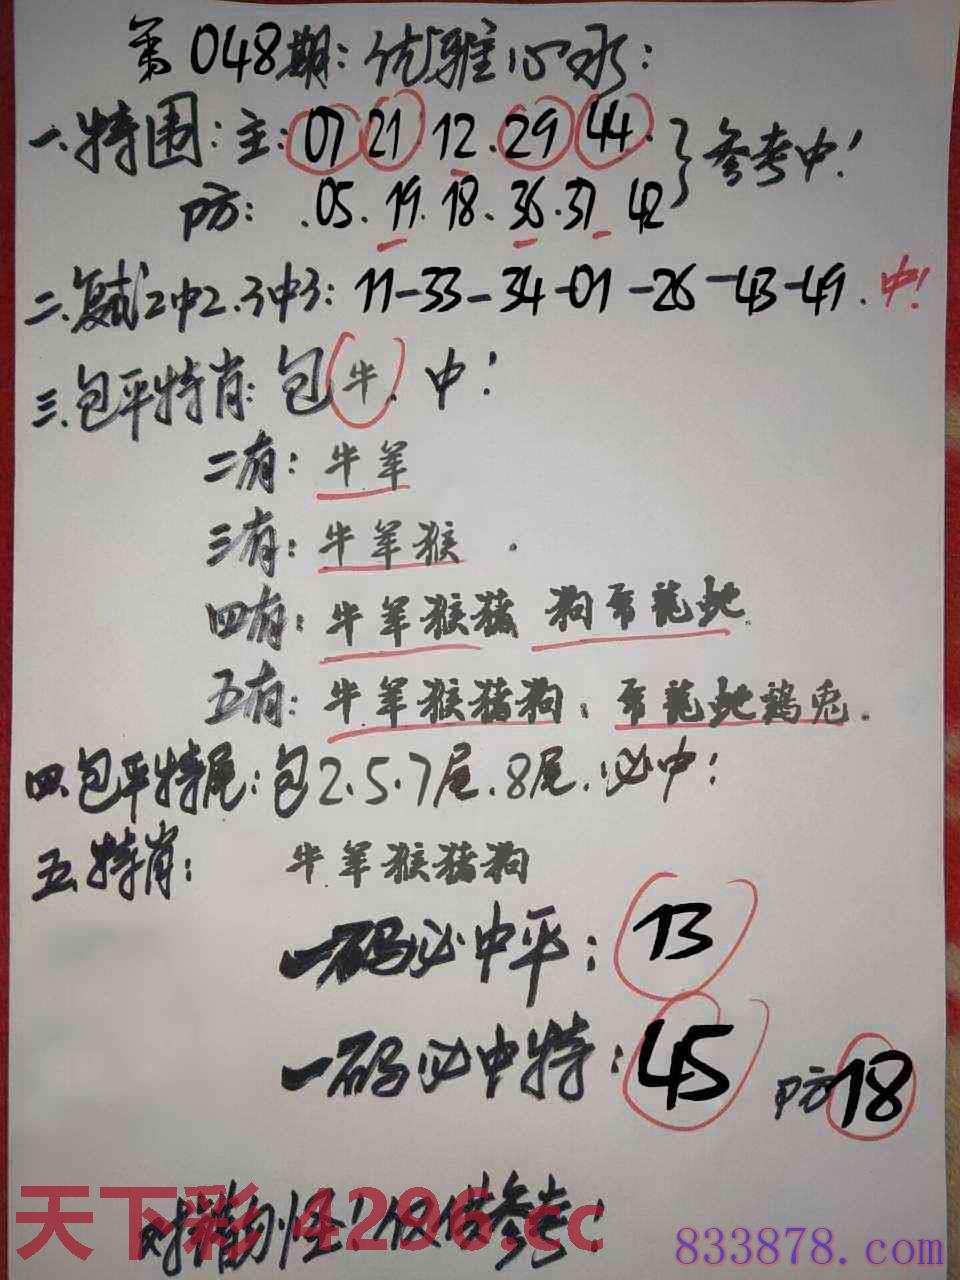 第048期：优雅心水：
一.特围：主：07 21 12.29 44.
参考中！
防：.05.19.18.36.37 42
二.复式2中2.3中3：11-33-34-01-26-43-49.中！
三.包平特肖：包牛.中！
二有：牛羊
三有：牛羊猴.
四有：牛羊猴猪 狗虎龙蛇.
五有：牛羊猴猪狗；虎龙蛇鸡兔.
四.包平特尾：包2.5.7尾.8尾.必中！
五.特肖：牛羊猴猪狗
一码必中平：13
一码必中特：45 防18
天下彩 4296.cc
仅供参考！
833878.com